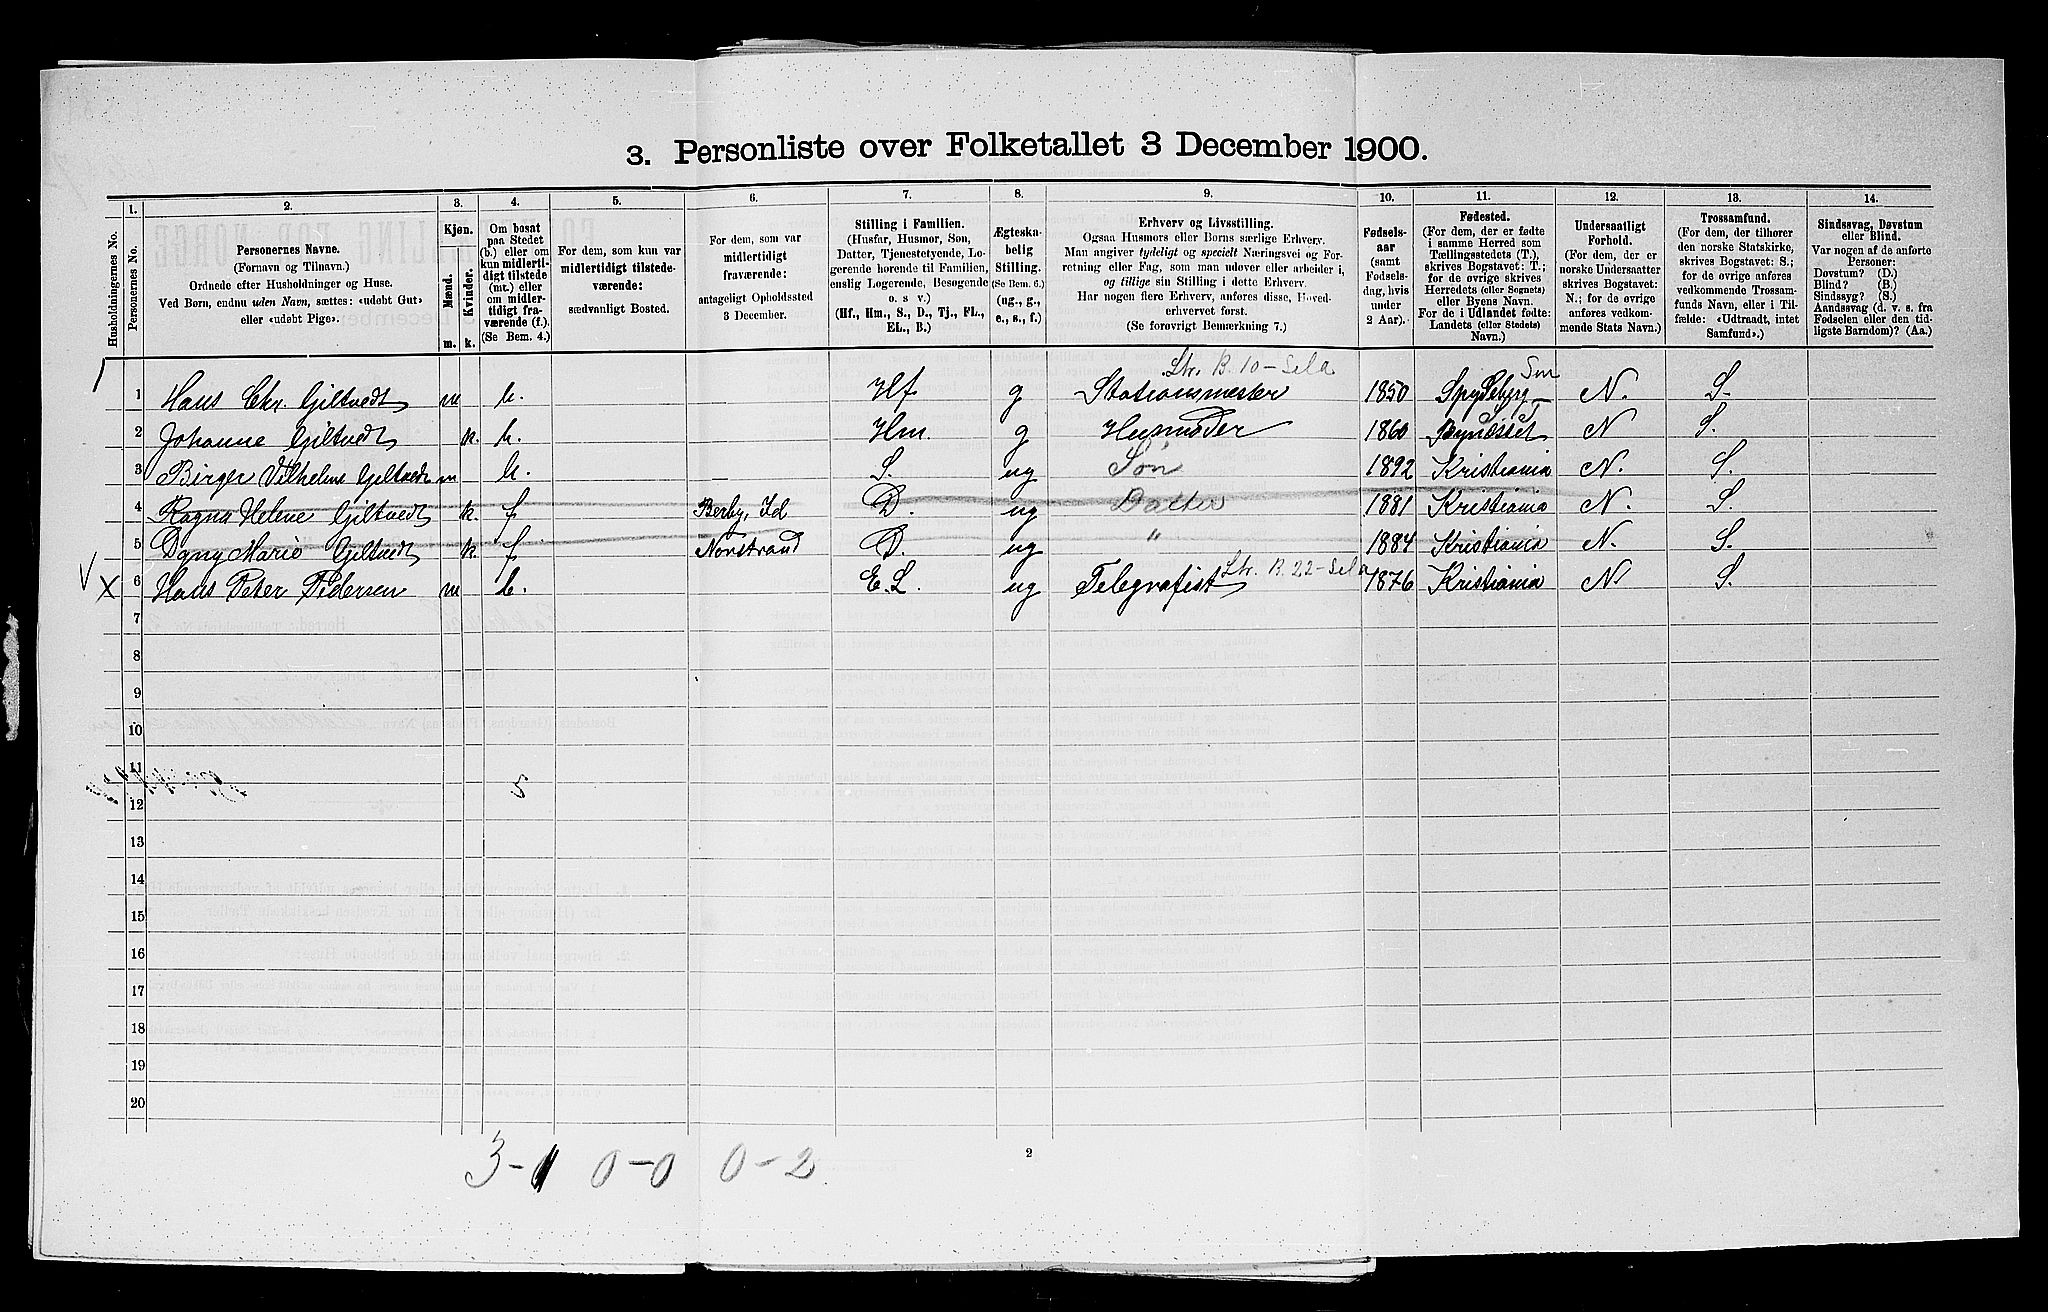 3. Personliste over Folketallet 3 December 1900.
1. 2. 3. 4. 5. 6. 7. 8. 9. 10. 11. 12. 13. 14.
Husholdningernes No.
Personernes No.
Personernes Navne.
(Fornavn og Tilnavn.)
Ordnede efter Husholdninger og Huse.
Ved Børn, endnu uden Navn, sættes: «udøbt Gut»
eller «udøbt Pige».
Kjøn.
Mænd.
Kvinder.
m. k.
Om bosat
paa Stedet
(b.) eller om
kun midlerti-
digt tilstede
(mt.) eller
om midler-
tidigt fra-
værende (f.)
(Se Bem. 4.)
For dem, som kun var
midlertidigt tilstede-
værende:
sædvanligt Bosted.
For dem, som var
midlertidigt
fraværende:
antageligt Opholdssted
3 December.
Stilling i Familien.
(Husfar, Husmor, Søn,
Datter, Tjenestetyende, Lo-
gerende hørende til Familien,
enslig Logerende, Besøgende
o. s v.)
(Hf., Hm., S., D., Tj., FL.,
EL., B.)
Ægteska-
belig
Stilling.
(Se Bem. 6.)
(ug., g.,
e., s., f.)
Erhverv og Livsstilling.
Ogsaa Husmors eller Børns særlige Erhverv.
Man angiver tydeligt og specielt Næringsvei og For-
retning eller Fag, som man udøver eller arbeider i,
og tillige sin Stilling i dette Erhverv.
Har nogen flere Erhverv, anføres disse, Hoved-
erhvervet først.
(Se forøvrigt Bemærkning 7.)
Fødsels-
aar
(samt
Fødsels-
dag, hvis
under
2 Aar).
Fødested.
(For dem, der er fødte
i samme Herred som
Tællingsstedets (T.),
skrives Bogstavet: T.;
for de øvrige skrives
Herredets (eller Sognets)
eller Byens Navn.
For de i Udlandet fødte:
Landets (eller Stedets)
Navn.)
Undersaatligt
Forhold.
(For dem, der er
norske Undersaatter
skrives Bogstavet:
N.; for de øvrige
anføres vedkom-
mende Stats Navn.)
Trossamfund.
(For dem, der tilhører
den norske Statskirke,
skrives Bogstavet: S.;
for de øvrige anføres
vedkommende Trossam-
funds Navn, eller i Til-
fælde: «Udtraadt, intet
Samfund».)
Sindssvag, Døvstum
eller Blind.
Var nogen af de anførte
Personer:
Døvstum? (D.)
Blind? (B.)
Sindssyg? (S.)
Aandssvag (d. v. s. fra
Fødselen eller den tid-
ligste Barndom)? (Aa.)
Str. B. 10 - Sela Sm
1 Hans Chr. Giltvedt m b. Hf g Stationsmester 1850 Spydeberg N. S.
2 Johanne Giltvedt k. b. Hm. g Husmoder 1860 Bynæsset N S.
3 Birger Vilhelm Giltvedt m b. S. ug Søn 1892 Kristiania N. S.
4 Ragna Helene Giltvedt k. f Berby, Id D. ug Datter 1881 Kristiania N. S.
5 Dgny Marie Giltvedt k f Norstrand D. ug " 1884 Kristiania N. S.
6 X Hans Peter Pedersen m b. E.L. ug Telegrafist Str. B. 22 - Sela 1876 Kristiania N S.
7
8
9
10
11
5
12
13
14
15
16
17
18
19
20
3-1 0-0 0-2
2